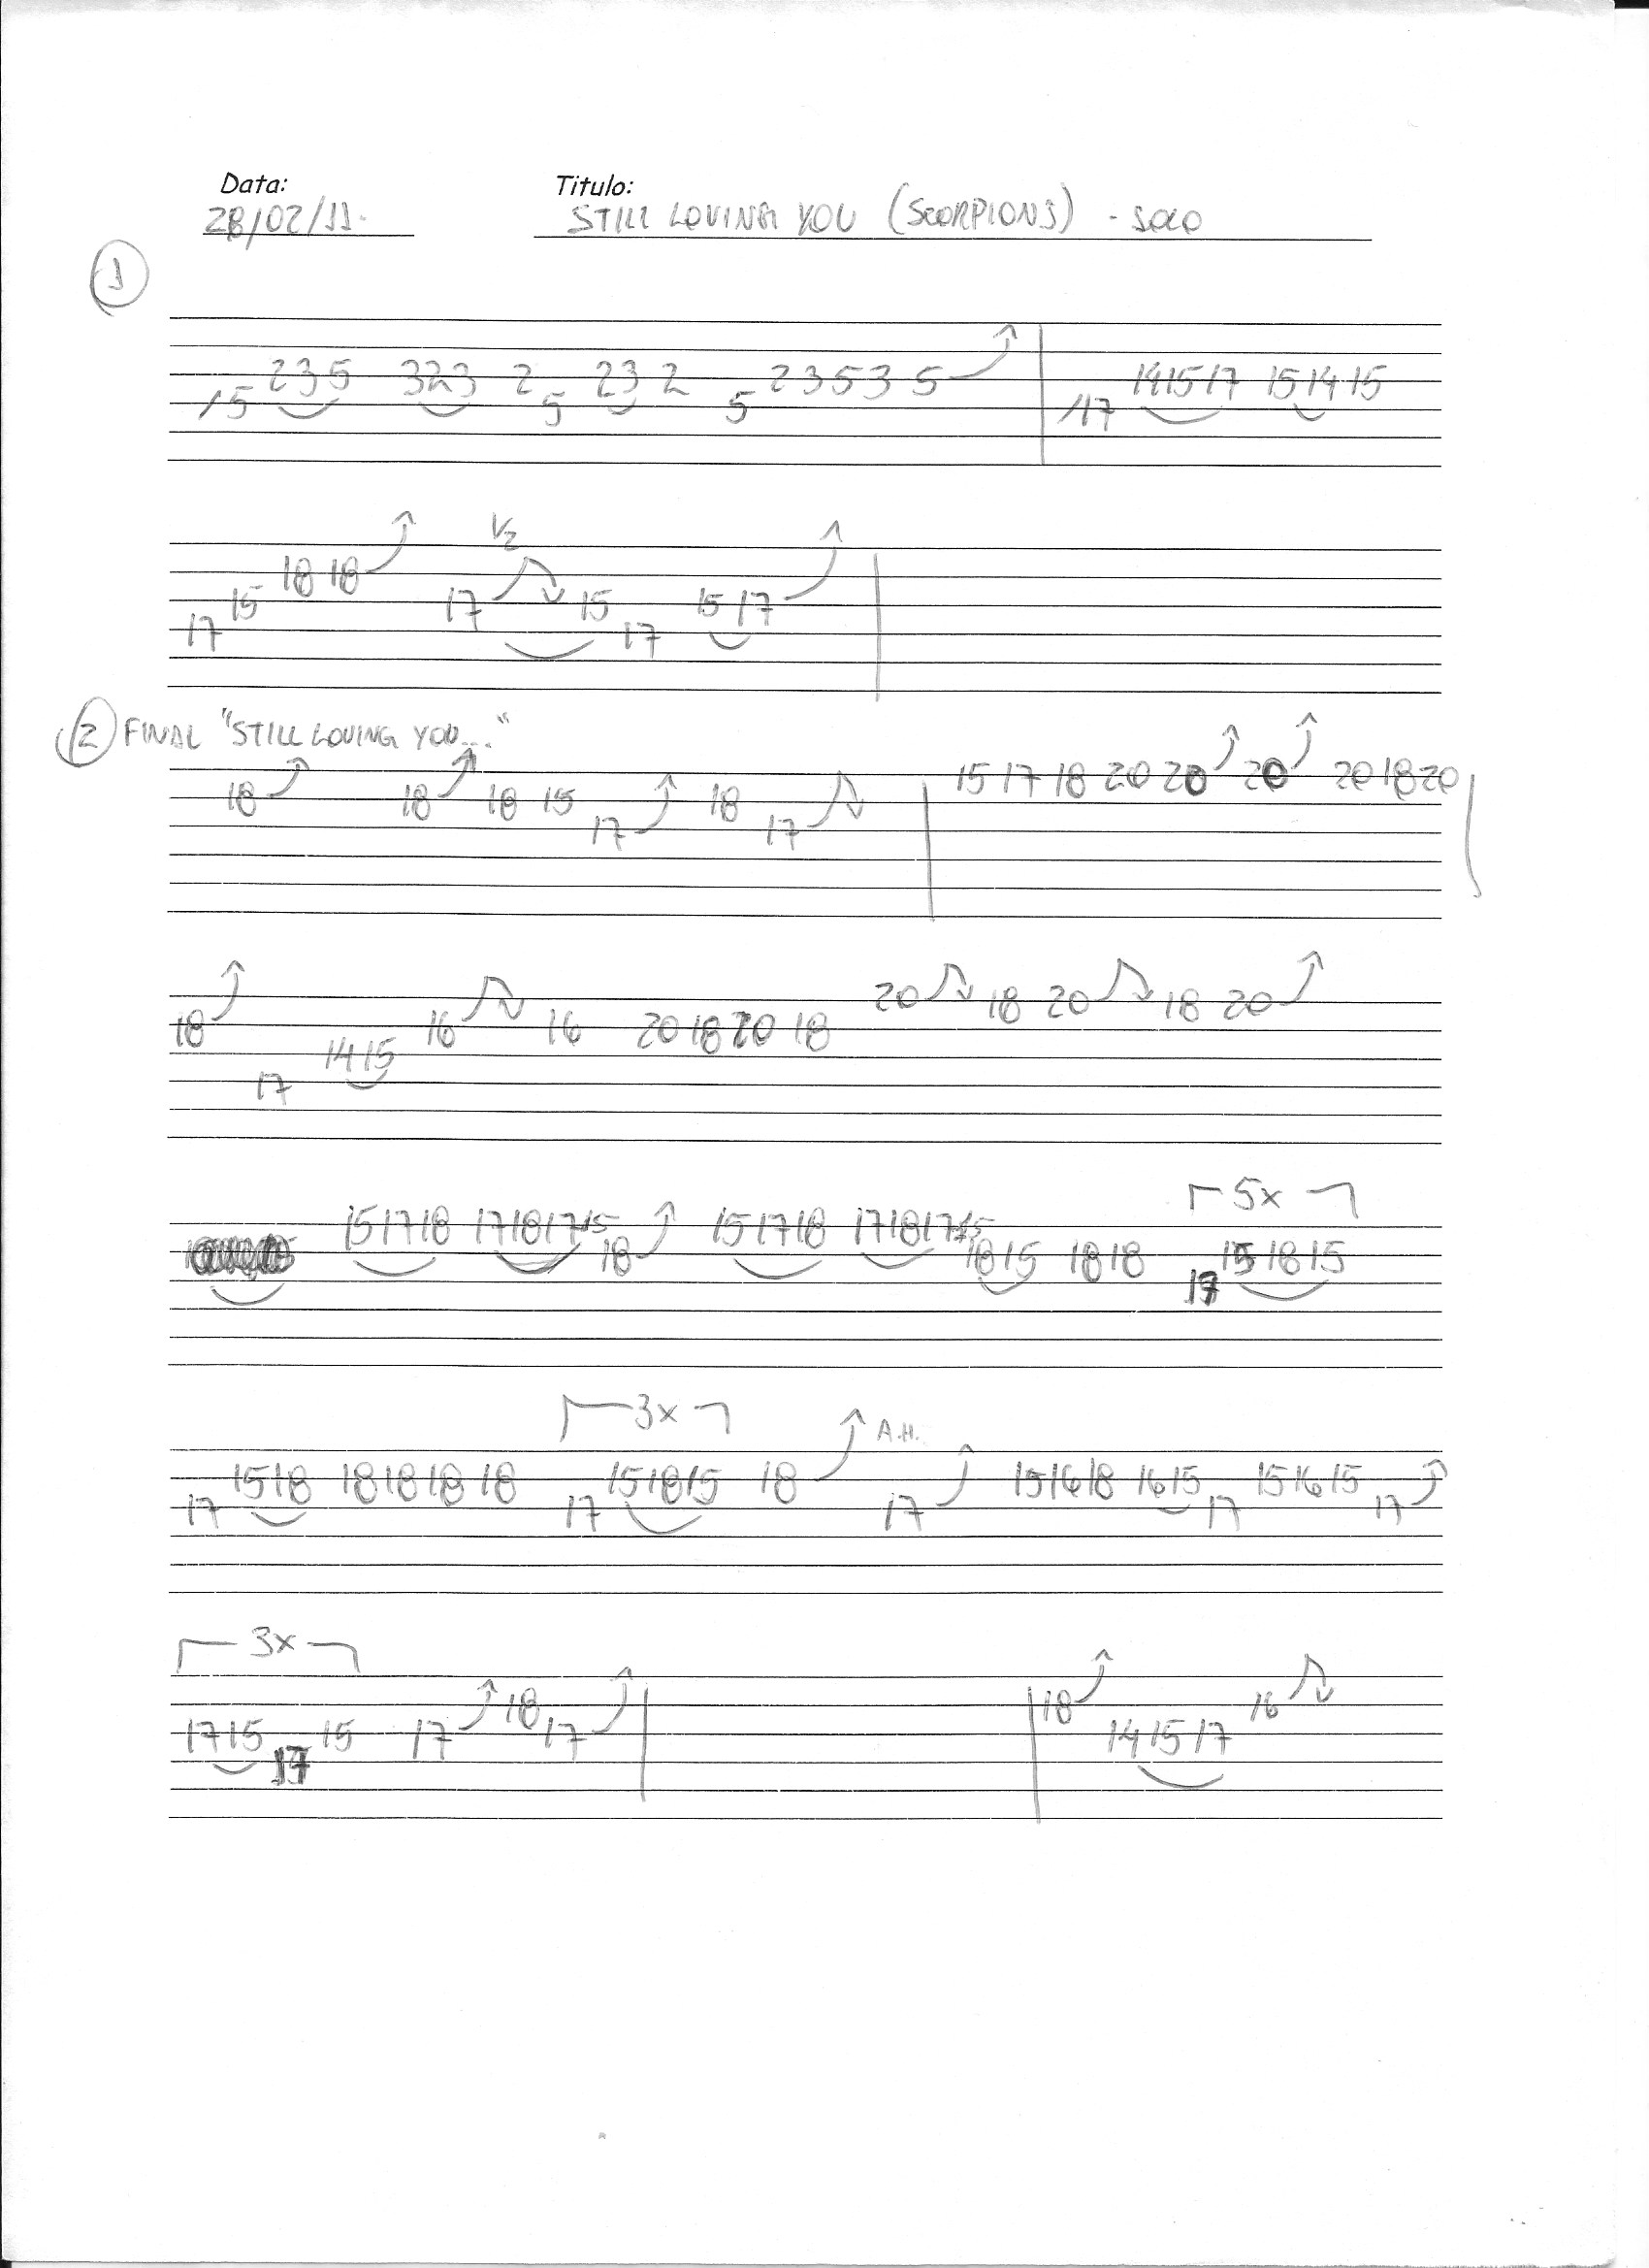 Data: Titulo:
28/02/11 STILL LOVING YOU (SCORPIONS) - SOLO
1
/5 2 3 5 3 2 3 2 5 2 3 2 5 2 3 5 3 5 /17 14 15 17 15 14 15
1/2
17 15 18 18 17 15 17 15 17
2 FINAL "STILL LOVING YOU..."
18 18 18 15 17 18 17 15 17 18 20 20 20 20 18 20
18 17 14 15 16 16 20 18 20 18 20 18 20 18 20
5x
15 17 18 17 18 17 15 18 15 17 18 17 18 17 15 18 15 18 18 17 15 18 15
3x A.H.
17 15 18 18 18 18 18 17 15 18 15 18 17 15 16 18 16 15 17 15 16 15 17
3x
17 15 17 15 17 18 17 18 14 15 17 16